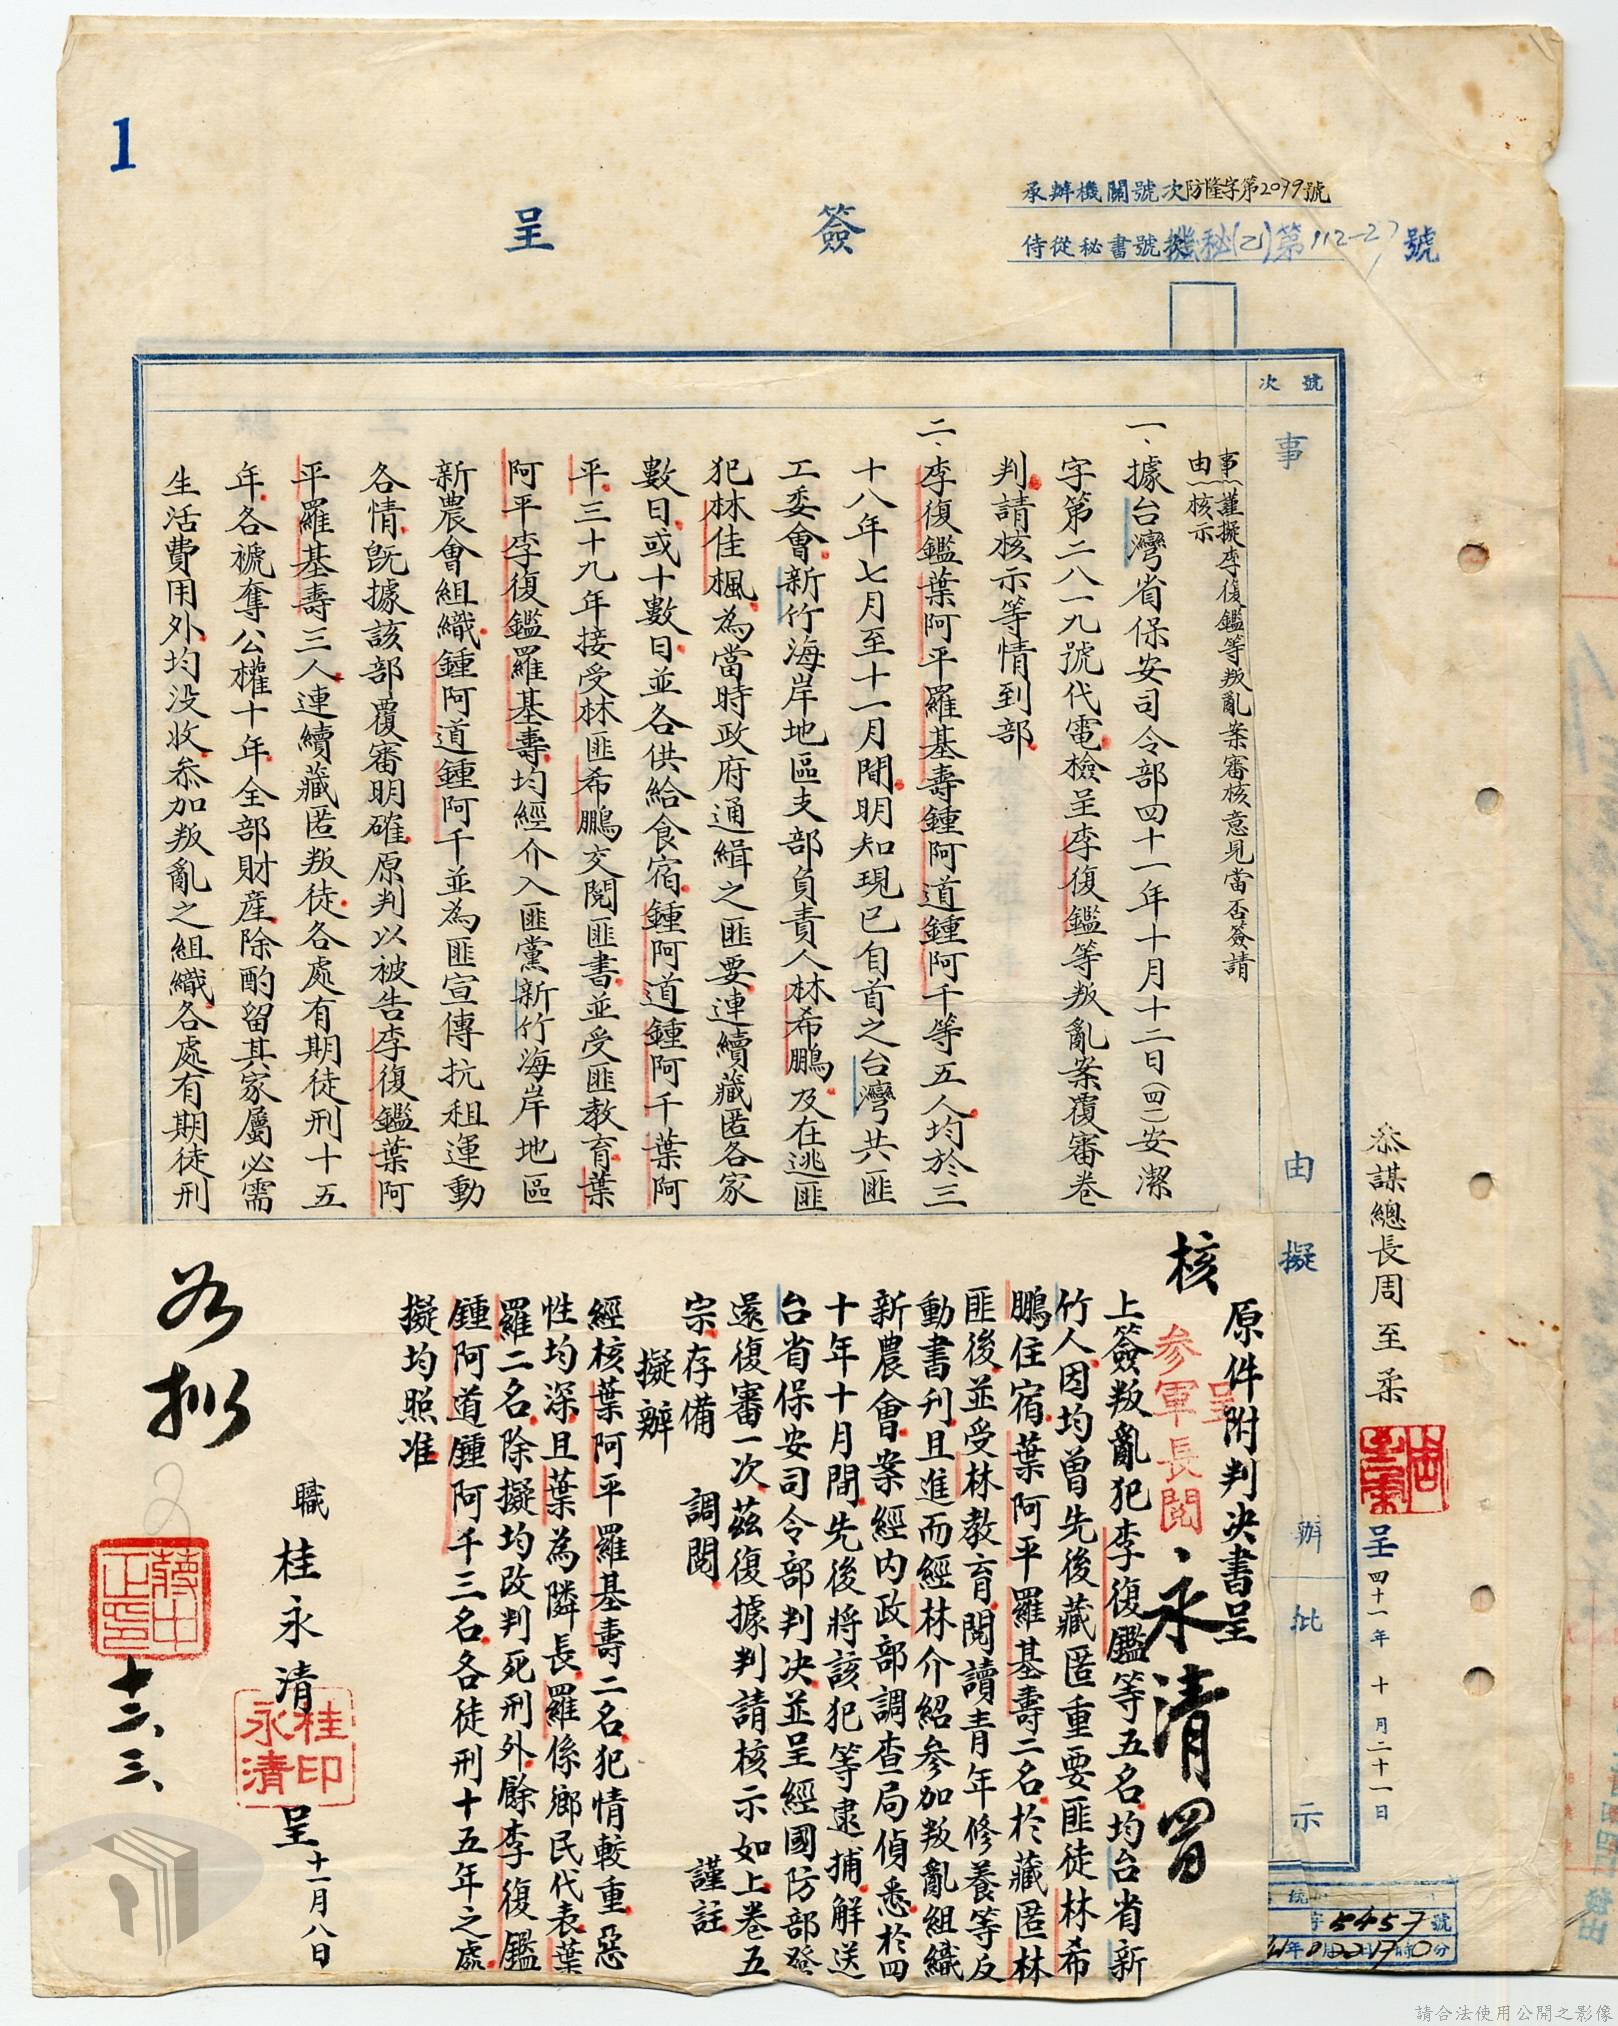 1
簽呈
承辦機關號次防隆字第2079號
侍從秘書號次機秘(乙)第112-27號
號次
事由擬辦批示
事由:謹擬李復鑑等叛亂案審核意見當否簽請
核示
一、據台灣省保安司令部四十一年十月十二日(四一)安潔
字第二八一九號代電檢呈李復鑑等叛亂案覆審卷
判請核示等情到部
二、李復鑑葉阿平羅基壽鍾阿道鍾阿千等五人均於三
十八年七月至十一月間明知現已自首之台灣共匪
工委會新竹海岸地區支部負責人林希鵬及在逃匪
犯林佳楓為當時政府通緝之匪要連續藏匿各家
數日或十數日並各供給食宿鍾阿道鍾阿千葉阿
平三十九年接受林匪希鵬交閱匪書並受匪教育葉
阿平李復鑑羅基壽均經介入匪黨新竹海岸地區
新農會組織鍾阿道鍾阿千並為匪宣傳抗租運動
各情既據該部覆審明確原判以被告李復鑑葉阿
平羅基壽三人連續藏匿叛徒各處有期徒刑十五
年各褫奪公權十年全部財產除酌留其家屬必需
生活費用外均没收叅加叛亂之組織各處有期徒刑
叅謀總長周至柔
呈四十一年十月二十一日
核
原件附判決書呈
呈
參軍長閱、永清
上簽叛亂犯李復鑑等五名均台省新
竹人因均曾先後藏匿重要匪徒林希
鵬住宿葉阿平羅基壽二名於藏匿林
匪後並受林教育閱讀青年修養等反
動書刊且進而經林介紹參加叛亂組織
新農會案經內政部調查局偵悉於四
十年十月間先後將該犯等逮捕解送
台省保安司令部判決並呈經國防部發
還復審一次茲復據判請核示如上卷五
宗存備調閱 謹註
擬辦
經核葉阿平羅基壽二名犯情較重惡
性均深且葉為隣長羅係鄉民代表葉
羅二名除擬均改判死刑外餘李復鑑
鍾阿道鍾阿千三名各徒刑十五年之處
擬均照准
職桂永清呈十一月八日
桂永清印
如擬
蔣中正印
十二、三、
字5457號
請合法使用公開之影像